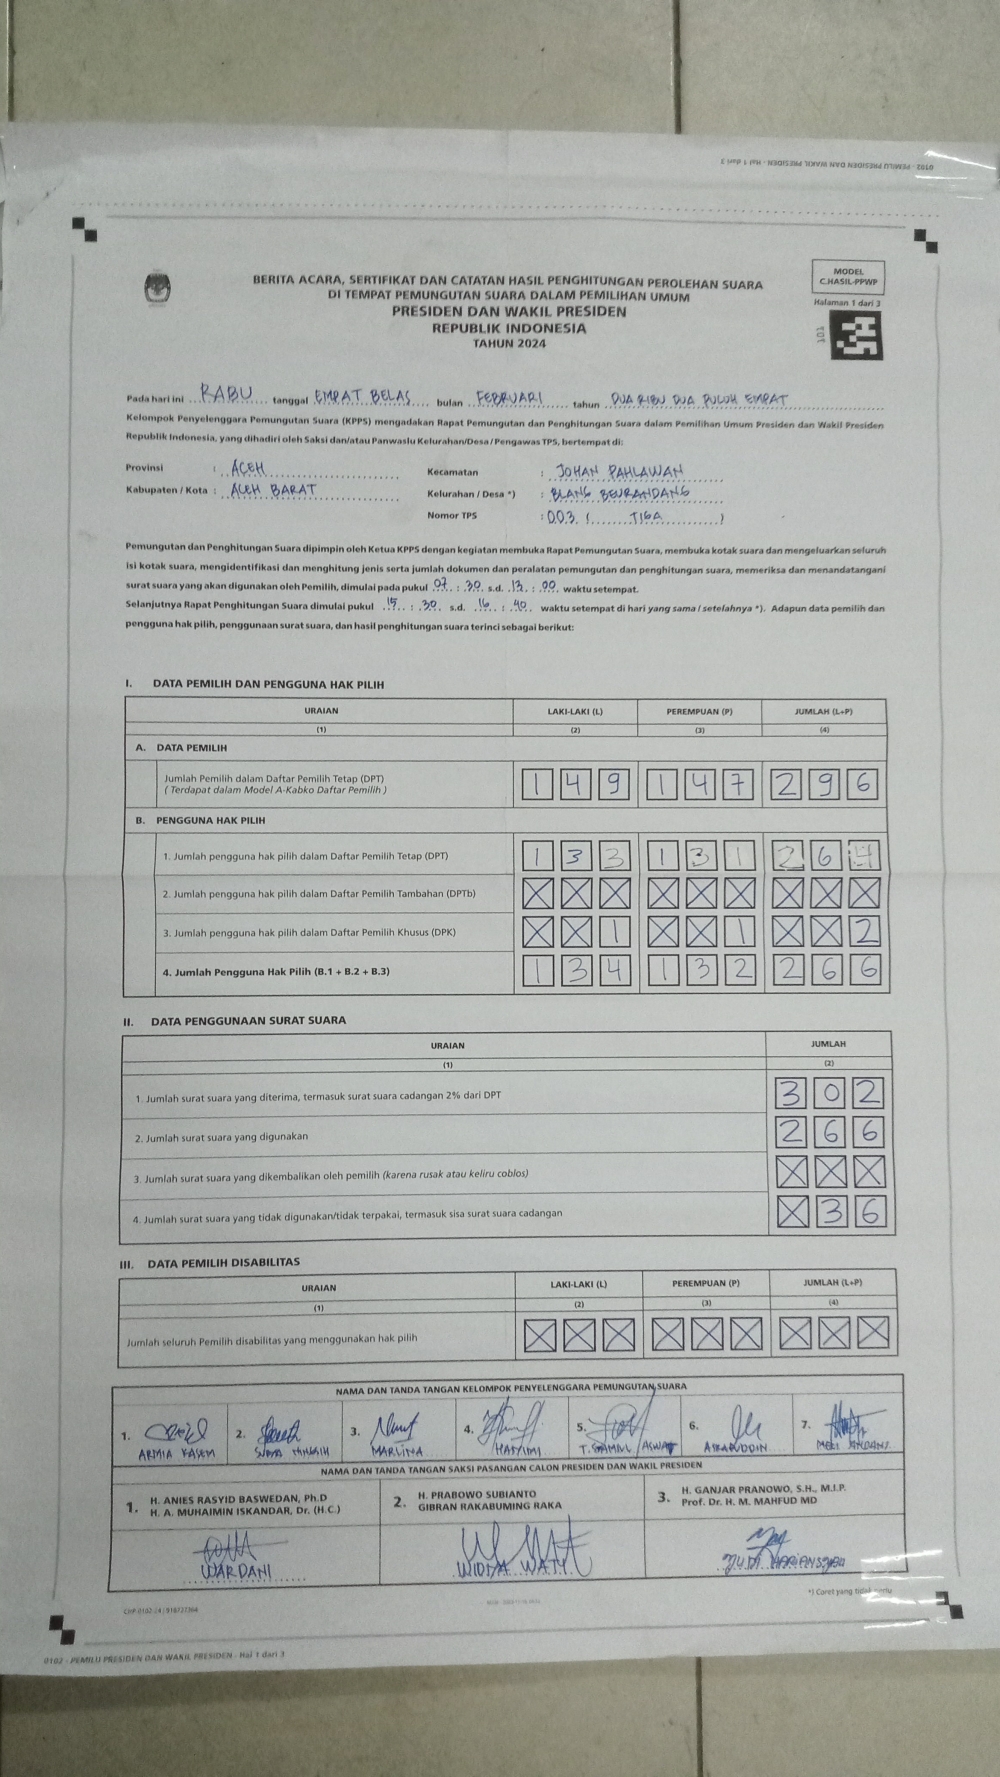 0102 - PEMILU PRESIDEN DAN WAKIL PRESIDEN - Hal 1 dari 3
MODEL
C.HASIL-PPWP
Halaman 1 dari 3
101
BERITA ACARA, SERTIFIKAT DAN CATATAN HASIL PENGHITUNGAN PEROLEHAN SUARA
DI TEMPAT PEMUNGUTAN SUARA DALAM PEMILIHAN UMUM
PRESIDEN DAN WAKIL PRESIDEN
REPUBLIK INDONESIA
TAHUN 2024
Pada hari ini RABU tanggal EMPAT BELAS bulan FEBRUARI tahun DUA RIBU DUA PULUH EMPAT
Kelompok Penyelenggara Pemungutan Suara (KPPS) mengadakan Rapat Pemungutan dan Penghitungan Suara dalam Pemilihan Umum Presiden dan Wakil Presiden
Republik Indonesia, yang dihadiri oleh Saksi dan/atau Panwaslu Kelurahan/Desa / Pengawas TPS, bertempat di:
Provinsi : ACEH Kecamatan : JOHAN PAHLAWAN
Kabupaten / Kota : ACEH BARAT Kelurahan / Desa *) : BLANG BEURANDANG
Nomor TPS : 003 ( TIGA )
Pemungutan dan Penghitungan Suara dipimpin oleh Ketua KPPS dengan kegiatan membuka Rapat Pemungutan Suara, membuka kotak suara dan mengeluarkan seluruh
isi kotak suara, mengidentifikasi dan menghitung jenis serta jumlah dokumen dan peralatan pemungutan dan penghitungan suara, memeriksa dan menandatangani
surat suara yang akan digunakan oleh Pemilih, dimulai pada pukul 07 : 30 s.d. 13 : 00 waktu setempat.
Selanjutnya Rapat Penghitungan Suara dimulai pukul 15 : 30 s.d. 16 : 40 waktu setempat di hari yang sama / setelahnya *). Adapun data pemilih dan
pengguna hak pilih, penggunaan surat suara, dan hasil penghitungan suara terinci sebagai berikut:
I. DATA PEMILIH DAN PENGGUNA HAK PILIH
URAIAN LAKI-LAKI (L) PEREMPUAN (P) JUMLAH (L+P)
(1) (2) (3) (4)
A. DATA PEMILIH
Jumlah Pemilih dalam Daftar Pemilih Tetap (DPT) 1 4 9 1 4 7 2 9 6
( Terdapat dalam Model A-Kabko Daftar Pemilih )
B. PENGGUNA HAK PILIH
1. Jumlah pengguna hak pilih dalam Daftar Pemilih Tetap (DPT) 1 3 3 1 3 1 2 6 4
2. Jumlah pengguna hak pilih dalam Daftar Pemilih Tambahan (DPTb) X X X X X X X X X
3. Jumlah pengguna hak pilih dalam Daftar Pemilih Khusus (DPK) X X 1 X X 1 X X 2
4. Jumlah Pengguna Hak Pilih (B.1 + B.2 + B.3) 1 3 4 1 3 2 2 6 6
II. DATA PENGGUNAAN SURAT SUARA
URAIAN JUMLAH
(1) (2)
1. Jumlah surat suara yang diterima, termasuk surat suara cadangan 2% dari DPT 3 0 2
2. Jumlah surat suara yang digunakan 2 6 6
3. Jumlah surat suara yang dikembalikan oleh pemilih (karena rusak atau keliru coblos) X X X
4. Jumlah surat suara yang tidak digunakan/tidak terpakai, termasuk sisa surat suara cadangan X 3 6
III. DATA PEMILIH DISABILITAS
URAIAN LAKI-LAKI (L) PEREMPUAN (P) JUMLAH (L+P)
(1) (2) (3) (4)
Jumlah seluruh Pemilih disabilitas yang menggunakan hak pilih X X X X X X X X X
NAMA DAN TANDA TANGAN KELOMPOK PENYELENGGARA PEMUNGUTAN SUARA
1. 2. 3. 4. 5. 6. 7.
ARMIA KASEM MARLINA HASYIMI ASKARUDDIN
NAMA DAN TANDA TANGAN SAKSI PASANGAN CALON PRESIDEN DAN WAKIL PRESIDEN
1. H. ANIES RASYID BASWEDAN, Ph.D
H. A. MUHAIMIN ISKANDAR, Dr. (H.C.)
2. H. PRABOWO SUBIANTO
GIBRAN RAKABUMING RAKA
3. H. GANJAR PRANOWO, S.H., M.I.P.
Prof. Dr. H. M. MAHFUD MD
WARDANI WIDYA WATY YUDI HARIANSYAH
*) Coret yang tidak perlu
0102 - PEMILU PRESIDEN DAN WAKIL PRESIDEN - Hal 1 dari 3